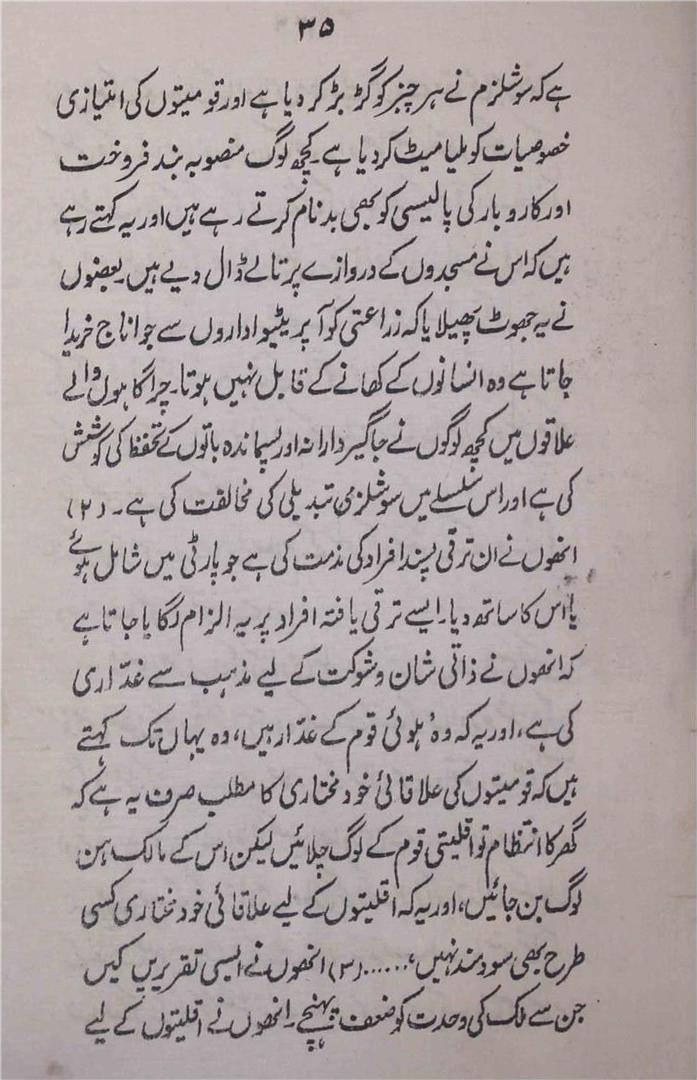 ۳۵
ہے کہ سوشلزم نے ہر چیز کو گڑ بڑ کر دیا ہے اور قومیتوں کی امتیازی
خصوصیات کو ملیا میٹ کر دیا ہے۔ کچھ لوگ منصوبہ بند فروخت
اور کاروبار کی پالیسی کو بھی بدنام کرتے رہے ہیں اور یہ کہتے رہے
ہیں کہ اس نے مسجدوں کے دروازے پر تالے ڈال دیے ہیں۔ بعضوں
نے یہ جھوٹ پھیلایا کہ زراعتی کوآپریٹیو اداروں سے جو اناج خریدا
جاتا ہے وہ انسانوں کے کھانے کے قابل نہیں ہوتا۔ چراگاہوں والے
علاقوں میں کچھ لوگوں نے جاگیردارانہ اور پسماندہ باتوں کے تحفظ کی کوشش
کی ہے اور اس سلسلے میں سوشلزمی تبدیلی کی مخالفت کی ہے۔ (۲)
انھوں نے ان ترقی پسند افراد کی مذمت کی ہے جو پارٹی میں شامل ہوئے
یا اس کا ساتھ دیا۔ ایسے ترقی یافتہ افراد پر یہ الزام لگایا جاتا ہے
کہ انھوں نے ذاتی شان و شوکت کے لیے مذہب سے غدّاری
کی ہے، اور یہ کہ وہ ہوئی قوم کے غدّار ہیں، وہ یہاں تک کہتے
ہیں کہ قومیتوں کی علاقائی خود مختاری کا مطلب صرف یہ ہے کہ
گھر کا انتظام تو اقلیتی قوم کے لوگ چلائیں لیکن اس کے مالک ہن
لوگ بن جائیں، اور یہ کہ اقلیتوں کے لیے علاقائی خود مختاری کسی
طرح بھی سود مند نہیں، ...... (۳) انھوں نے ایسی تقریریں کیں
جن سے ملک کی وحدت کو ضعف پہنچے۔ انھوں نے اقلیتوں کے لیے